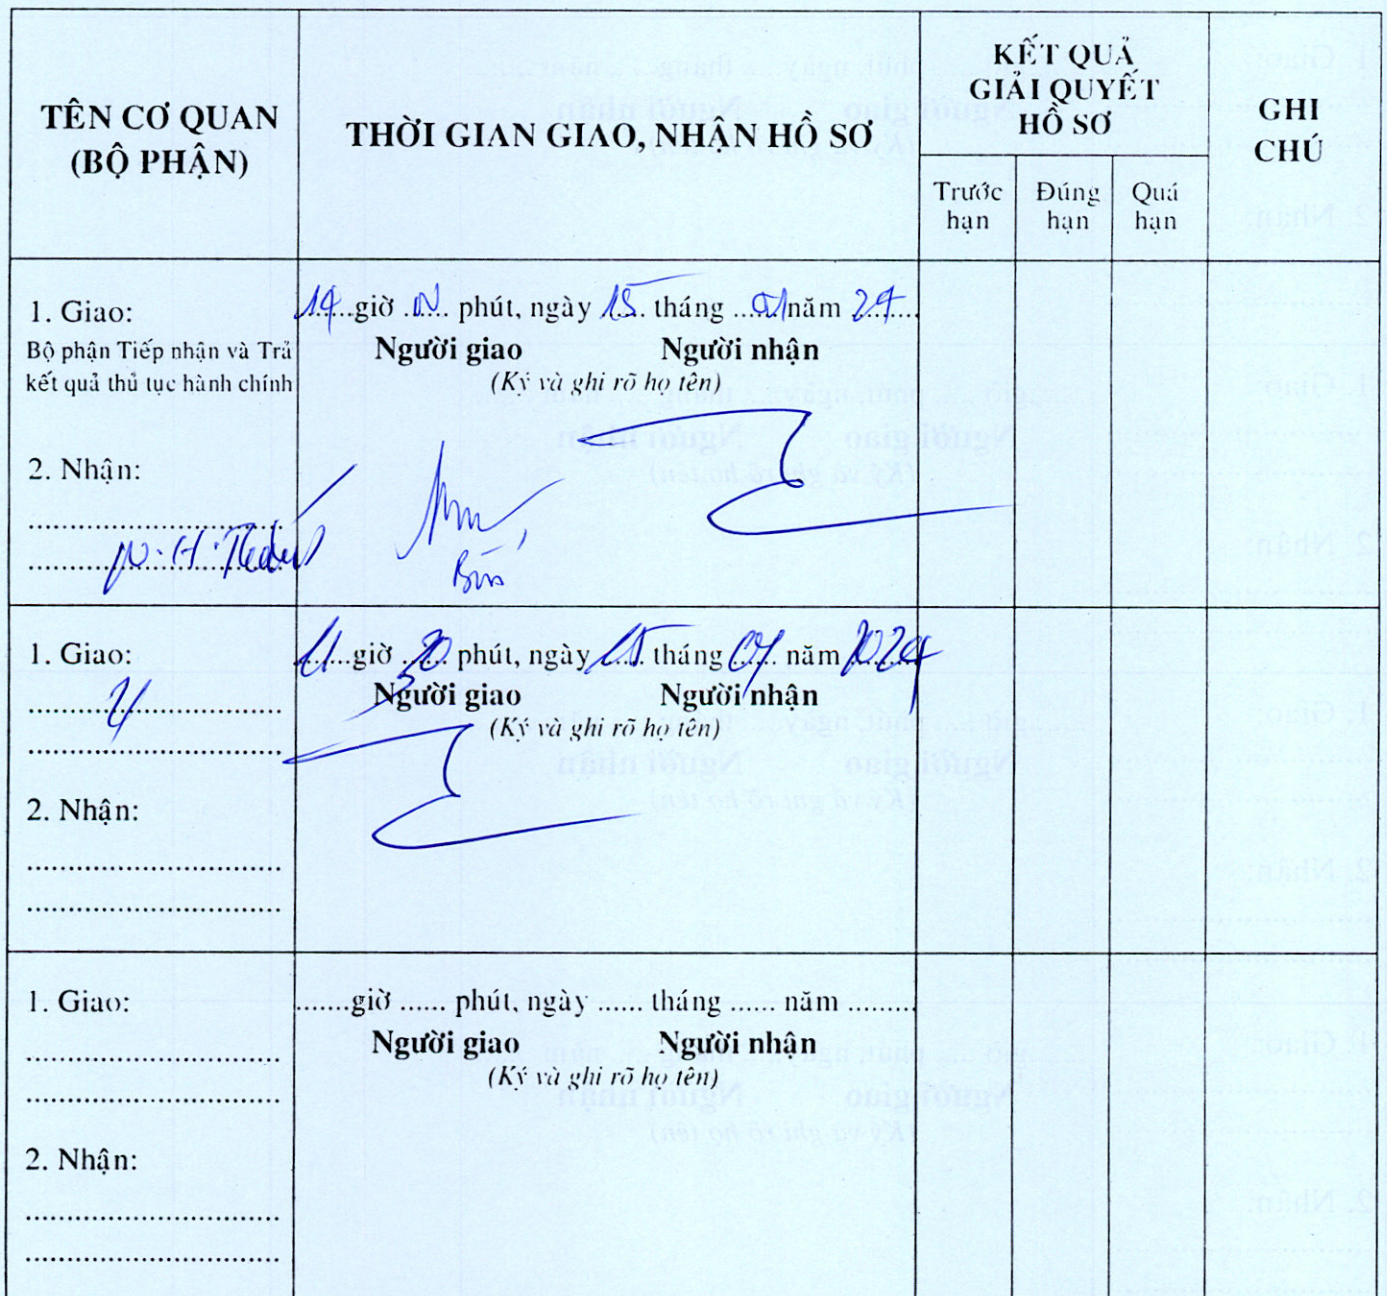 TÊN CƠ QUAN
(BỘ PHẬN)
THỜI GIAN GIAO, NHẬN HỒ SƠ
KẾT QUẢ
GIẢI QUYẾT
HỒ SƠ
Trước
hạn
Đúng
hạn
Quá
hạn
GHI
CHÚ
1. Giao:
Bộ phận Tiếp nhận và Trả
kết quả thủ tục hành chính
2. Nhận:
14 giờ phút, ngày 15 tháng năm 24
Người giao Người nhận
(Ký và ghi rõ họ tên)
1. Giao:
2. Nhận:
giờ 30 phút, ngày 15 tháng năm 2024
Người giao Người nhận
(Ký và ghi rõ họ tên)
1. Giao:
2. Nhận:
.......giờ ...... phút, ngày ...... tháng ...... năm .........
Người giao Người nhận
(Ký và ghi rõ họ tên)